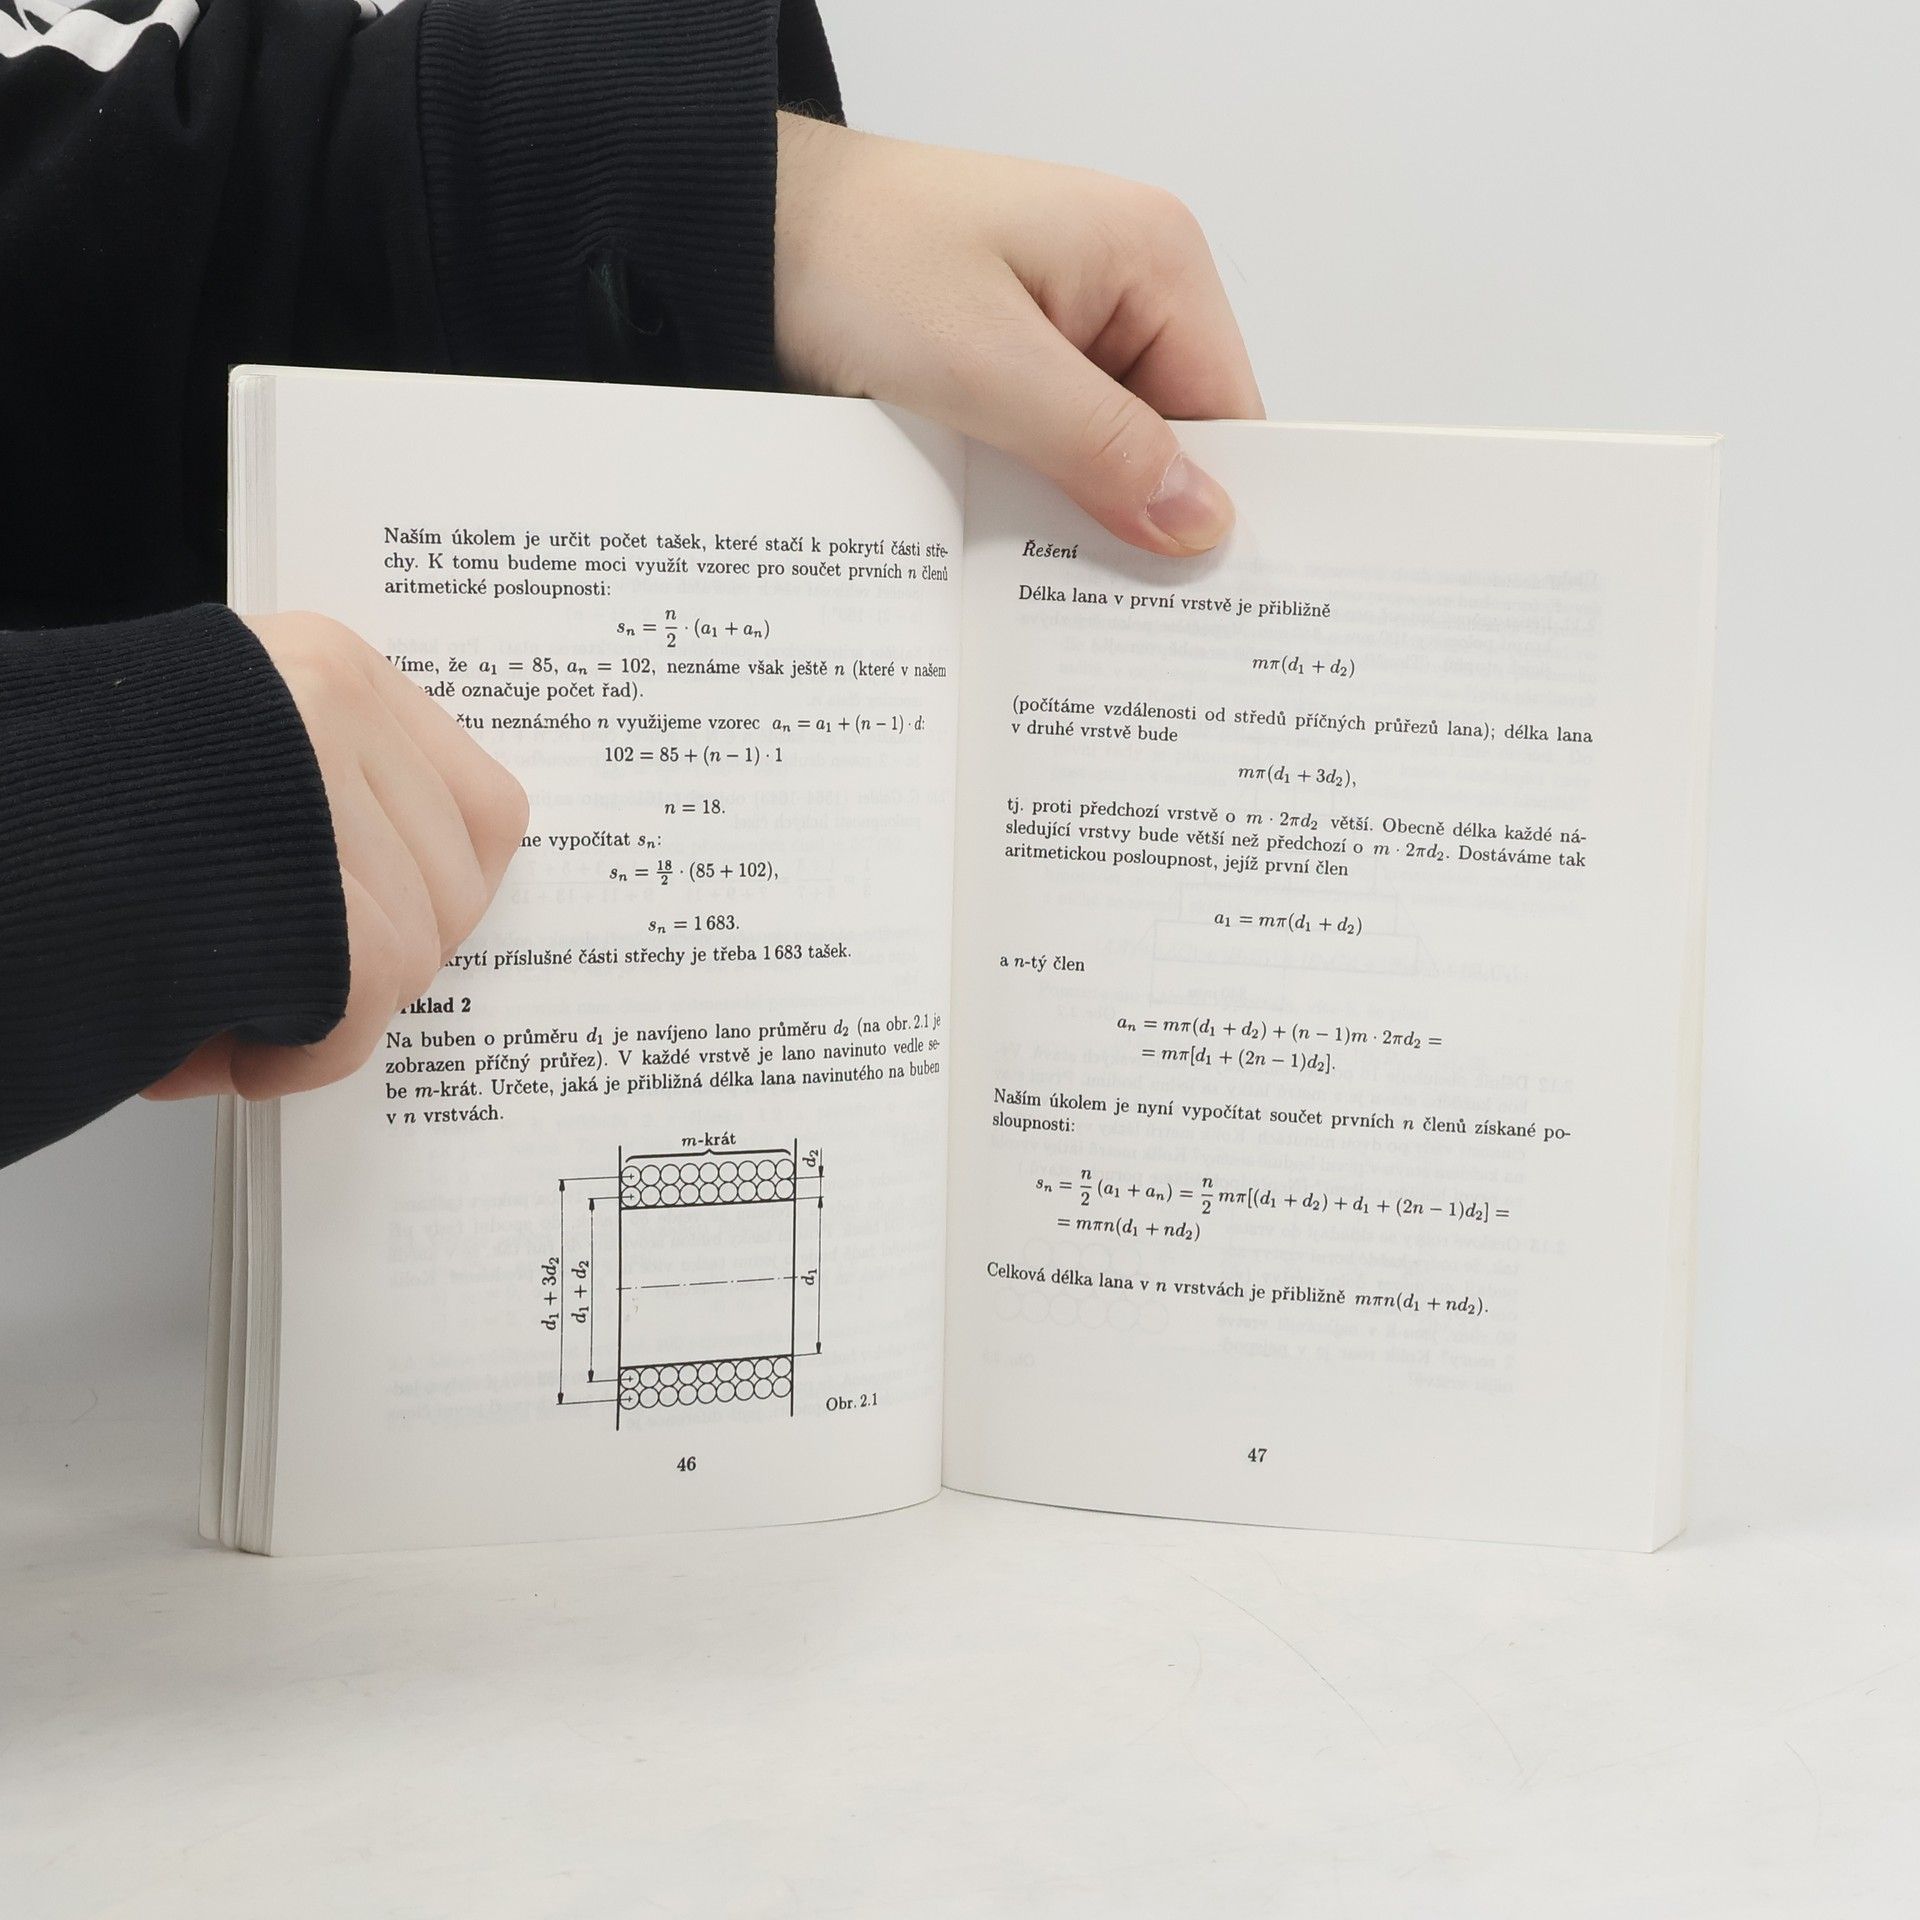 Naším úkolem je určit počet tašek, které stačí k pokrytí části stře-
chy. K tomu budeme moci využít vzorec pro součet prvních n členů
aritmetické posloupnosti:
sₙ = n/2 · (a₁ + aₙ)
Víme, že a₁ = 85, aₙ = 102, neznáme však ještě n (které v našem
označuje počet řad).
neznámého n využijeme vzorec aₙ = a₁ + (n − 1) · d:
102 = 85 + (n − 1) · 1
n = 18.
vypočítat sₙ:
sₙ = 18/2 · (85 + 102),
sₙ = 1 683.
příslušné části střechy je třeba 1 683 tašek.
Příklad 2
Na buben o průměru d₁ je navíjeno lano průměru d₂ (na obr. 2.1 je
zobrazen příčný průřez). V každé vrstvě je lano navinuto vedle se-
be m-krát. Určete, jaká je přibližná délka lana navinutého na buben
v n vrstvách.
m-krát
d₂
d₁ + 3d₂
d₁ + d₂
d₁
Obr. 2.1
46
Řešení
Délka lana v první vrstvě je přibližně
mπ(d₁ + d₂)
(počítáme vzdálenosti od středů příčných průřezů lana); délka lana
v druhé vrstvě bude
mπ(d₁ + 3d₂),
tj. proti předchozí vrstvě o m · 2πd₂ větší. Obecně délka každé ná-
sledující vrstvy bude větší než předchozí o m · 2πd₂. Dostáváme tak
aritmetickou posloupnost, jejíž první člen
a₁ = mπ(d₁ + d₂)
a n-tý člen
aₙ = mπ(d₁ + d₂) + (n − 1)m · 2πd₂ =
= mπ[d₁ + (2n − 1)d₂].
Naším úkolem je nyní vypočítat součet prvních n členů získané po-
sloupnosti:
sₙ = n/2 (a₁ + aₙ) = n/2 mπ[(d₁ + d₂) + d₁ + (2n − 1)d₂] =
= mπn(d₁ + nd₂)
Celková délka lana v n vrstvách je přibližně mπn(d₁ + nd₂).
47